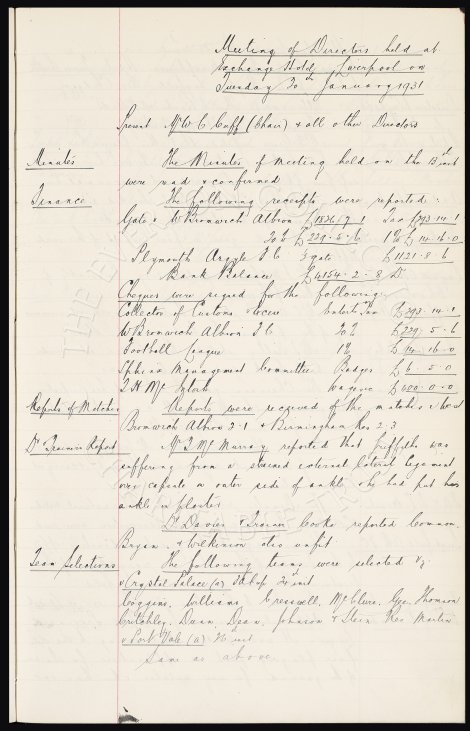 Meeting of Directors held at
Exchange Hotel, Liverpool on
Tuesday 20th January 1931
Present Mr W C Cuff (Chair) & all other Directors
Minutes The Minutes of meeting held on the 13th inst
were read & confirmed
Finance The following receipts were reported:
Gate v W Bromwich Albion £1836.19.1 Tax £293.14.1
20% £229.5.6 1% £14.16.0
Plymouth Argyle F C gate £1121.8.6
Bank Balance £4154.2.8 D
Cheques were signed for the following
Collector of Customs & Excise Enterts Tax £293.14.1
W Bromwich Albion F C 20% £229.5.6
Football League 1% £14.16.0
Sphinx Management Committee Badges £6.5.0
T H McIntosh wages £400.0.0
Reports of Matches Reports were received of the matches v West
Bromwich Albion 2.1 & Birmingham Res 2.3
Dr Trainers Report Mr T McMurray reported that Griffiths was
suffering from a strained external lateral ligament
over capsule on outer side of ankle & he had put his
ankle in plaster
Dr Davies & Trainer Cooke reported Common,
Bryan & Wilkinson also unfit.
Team Selections The following teams were selected vz
v Crystal Palace (a) 24 inst
Coggins, Williams, Cresswell, McClure, Gee, Thomson
Critchley, Dunn, Dean, Johnson & Stein Res Martin
v Port Vale (a)
Same as above.